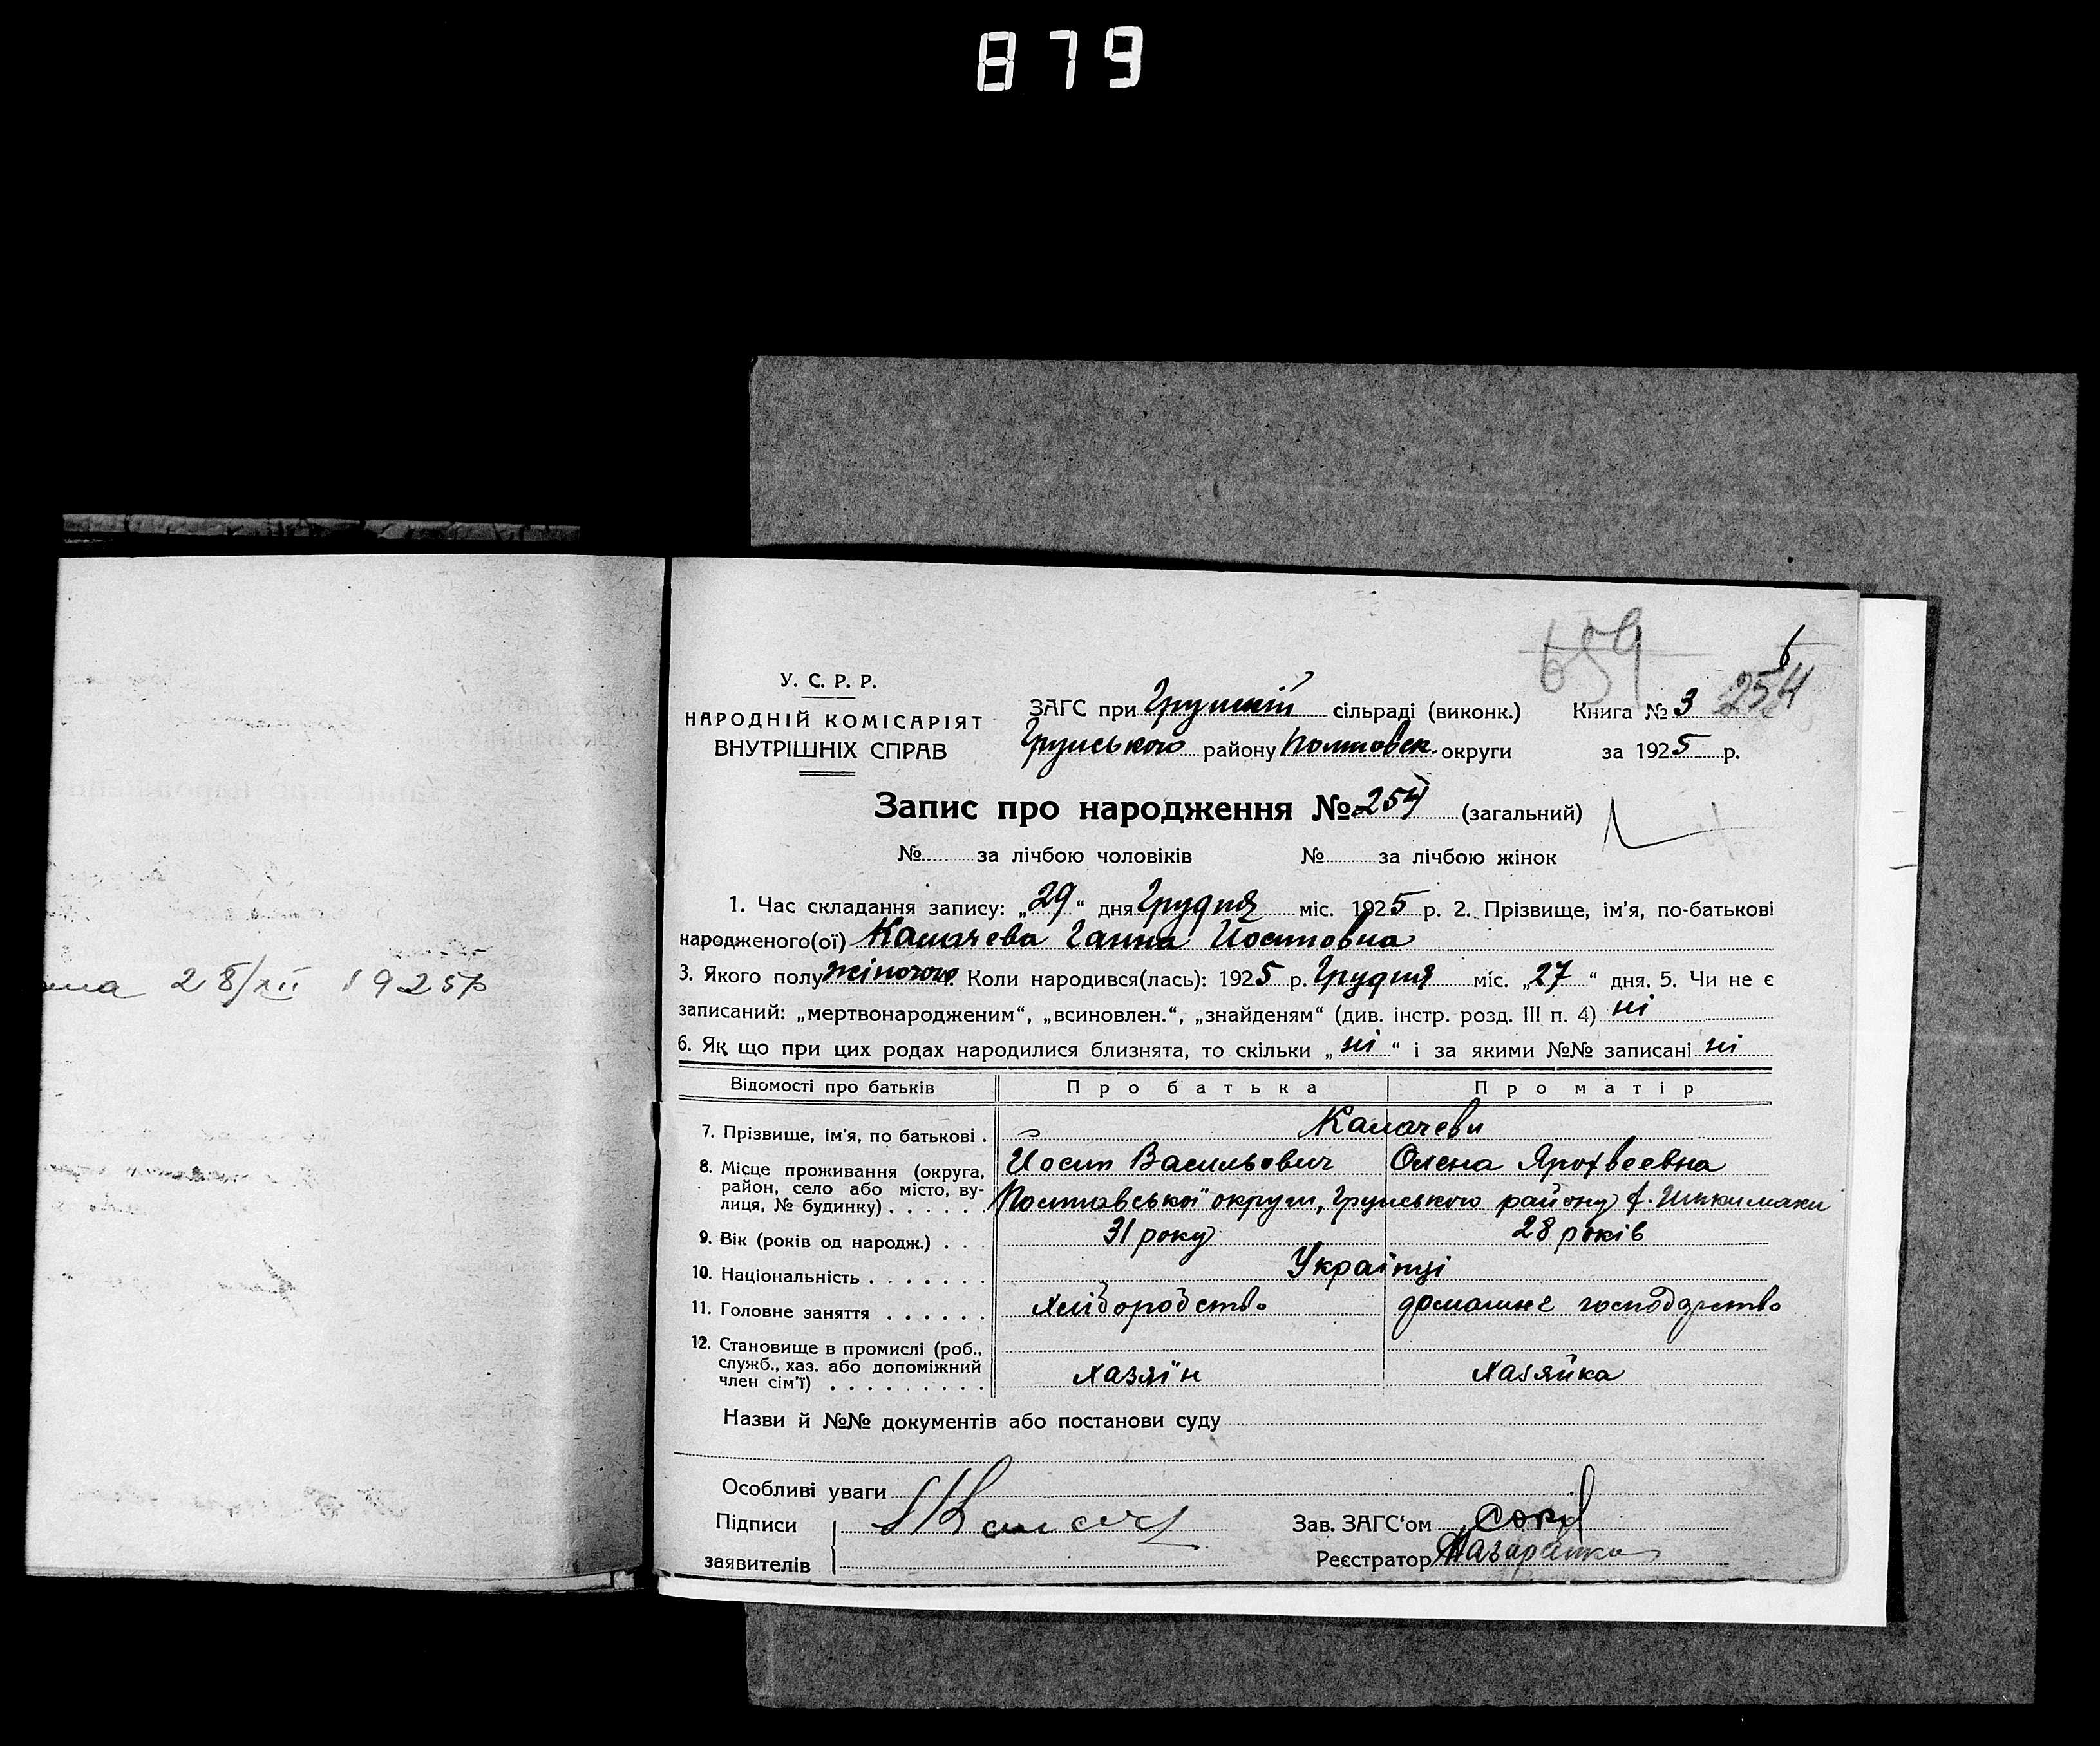 879
659
6
254
У. С. Р. Р.
НАРОДНІЙ КОМІСАРІЯТ
ВНУТРІШНІХ СПРАВ
ЗАГС при Грунській сільраді (виконк.) Книга № 3
Грунського району Полтовськ. округи за 1925 р.
Запис про народження № 254 (загальний)
№ за лічбою чоловіків № за лічбою жінок
1. Час складання запису: „29“ дня Грудня міс. 1925 р. 2. Прізвище, ім'я, по-батькові
народженого(ої) Ганна Йосиповна
3. Якого полу жіночого Коли народився(лась): 1925 р. Грудня міс. „27“ дня. 5. Чи не є
записаний: „мертвонародженим“, „всиновлен.“, „знайденям“ (див. інстр. розд. III п. 4) ні
6. Як що при цих родах народилися близнята, то скільки „ні“ і за якими №№ записані ні
Відомості про батьків Про батька Про матір
7. Прізвище, ім'я, по батькові .
Йосип Васильович Олена
8. Місце проживання (округа,
район, село або місто, ву-
лиця, № будинку) . . . . .
Полтавської округи, Грунського району
9. Вік (років од народж.) . . 31 року 28 років
10. Національність . . . . . . . Українці
11. Головне заняття . . . . . . хліборобство домашнє господарство
12. Становище в промислі (роб.,
служб., хаз. або допоміжний
член сім'ї) . . . . . . . . . хазяїн хазяйка
Назви й №№ документів або постанови суду
Особливі уваги
Підписи
заявителів
Зав. ЗАГС'ом
Реєстратор
28/XII 1925р